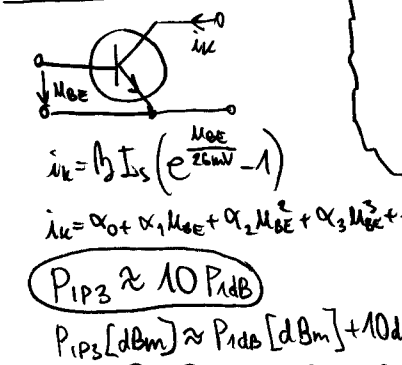 iₖ
u_BE
iₖ = β I_S (e^(u_BE / 26mV) - 1)
iₖ = α₀ + α₁ u_BE + α₂ u_BE² + α₃ u_BE³ +
P_IP3 ≈ 10 P_1dB
P_IP3 [dBm] ≈ P_1dB [dBm] + 10d